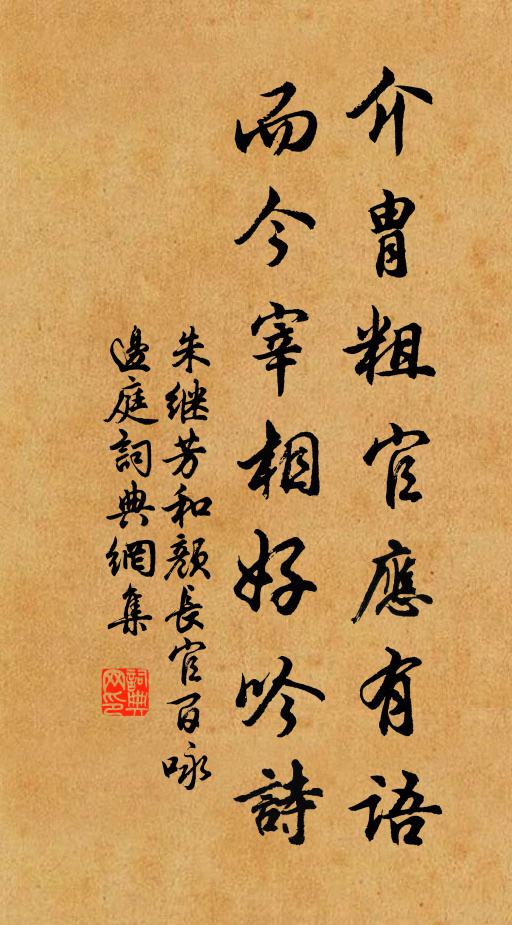 介胄粗官應有语
而今宰相好吟詩
朱继芳和颜長官百咏
邊庭詞典網集
詞典网印